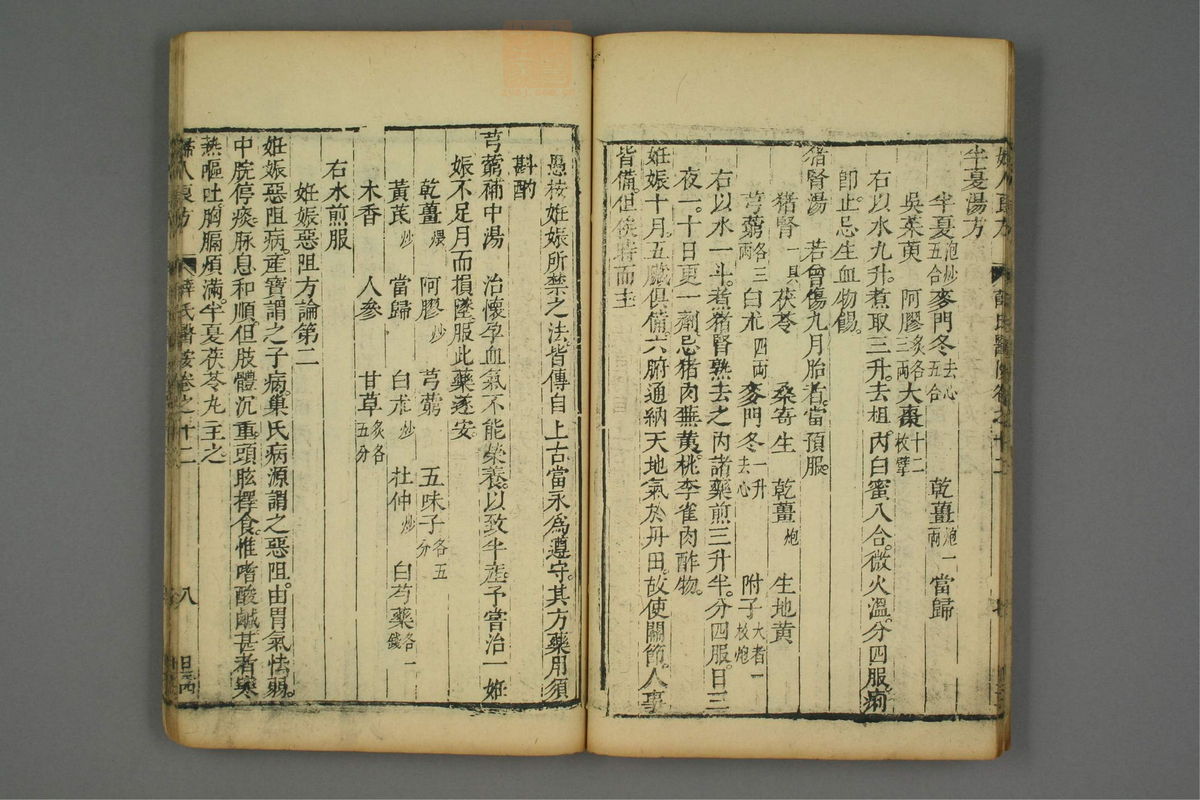 半夏湯方
半夏泡炒五合 麥門冬去心五合 乾薑炮一兩 當歸
吳茱萸 阿膠炙各三兩 大棗十二枚擘
右以水九升。煮取三升。去柤。內白蜜八合。微火溫。分四服。痢
即止。忌生血物餳。
猪腎湯 若曾傷九月胎者。當預服。
猪腎一具 茯苓 桑寄生 乾薑炮 生地黃
芎藭各三兩 白朮四兩 麥門冬一升去心 附子大者一枚炮
右以水一斗。煮猪腎熟去之。內諸藥煎三升半。分四服。日三
夜一。十日更一劑。忌猪肉蕪荑。桃李雀肉酢物。
妊娠十月。五臟俱備。六腑通納天地氣於丹田。故使關節。人事
皆備。但俟時而主
愚按妊娠所禁之法。皆傳自上古。當永為遵守。其方藥用須
斟酌
芎藭補中湯 治懷孕血氣不能榮養。以致半產。予嘗治一妊
娠不足月而損墜。服此藥遂安。
乾薑煨 阿膠炒 芎藭 五味子各五分
黃芪炒 當歸 白朮炒 杜仲炒 白芍藥各一錢
木香 人參 甘草炙各五分
右水煎服
妊娠惡阻方論第二
妊娠惡阻病。產寶謂之子病。巢氏病源謂之惡阻。由胃氣怯弱。
中脘停痰。脉息和順。但肢體沉重。頭眩擇食。惟嗜酸鹹。甚者寒
熱嘔吐。胸膈煩滿。半夏茯苓丸主之
婦人良方 薛氏醫案卷之十二 八